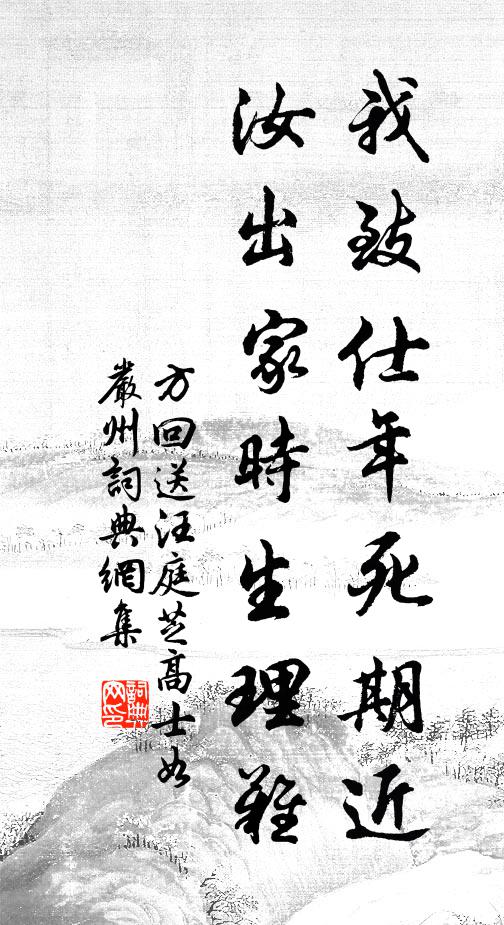 我致仕年死期近
汝出家時生理難
方回送汪庭芝高士如
嚴州詞典網集
詞典
网印